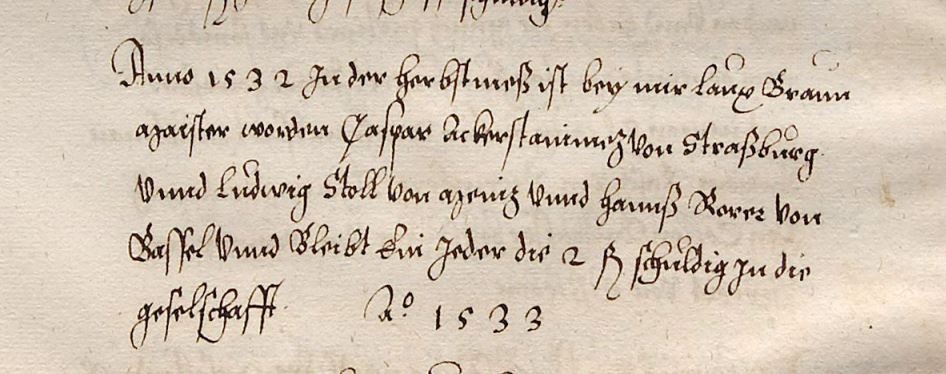 Anno 1532 In der herbstmeß ist bey mir laux Braun
maister worden Caspar Ackerstaimmetz von Straßburg
vnnd Ludwig Stoll von mentz vnnd hannß Rorer von
Bassel vnnd Bleibt Ein Jeder die 2 ß schuldig In die
geselschafft Aº 1533